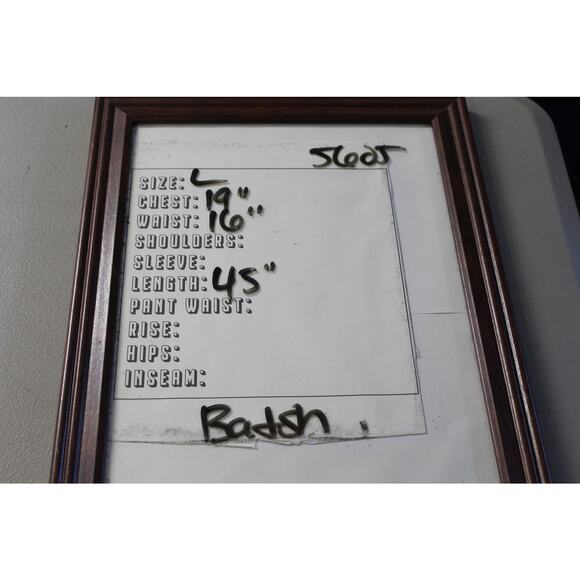 5605
SIZE: L
CHEST: 19"
WAIST: 16"
SHOULDERS:
SLEEVE:
LENGTH: 45"
PANT WAIST:
RISE:
HIPS:
INSEAM: